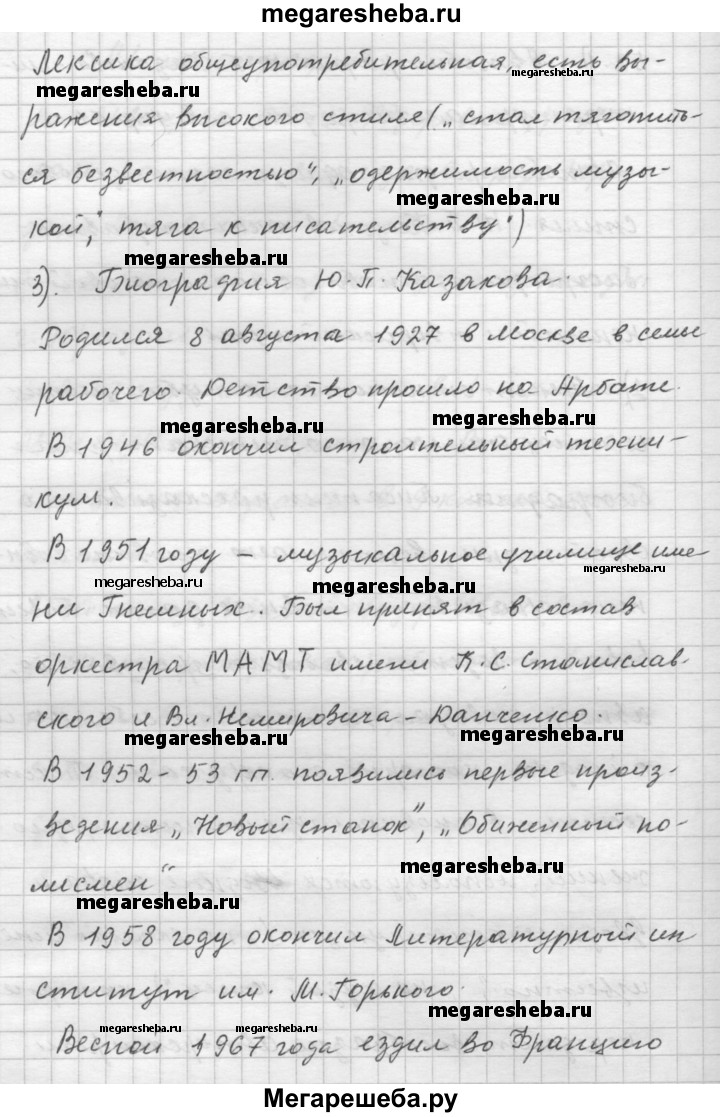 megaresheba.ru
Лексика общеупотребительная, есть вы-
megaresheba.ru
megaresheba.ru
ражения высокого стиля („стал тяготить-
ся безвестностью", „одержимость музы-
megaresheba.ru
кой", тяга к писательству")
megaresheba.ru
3). Биография Ю.П. Казакова.
Родился 8 августа 1927 в Москве в семье
рабочего. Детство прошло на Арбате.
megaresheba.ru
megaresheba.ru
В 1946 окончил строительный техни-
кум.
В 1951 году – музыкальное училище име-
megaresheba.ru
megaresheba.ru
megaresheba.ru
ни Гнесиных. Был принят в состав
оркестра МАМТ имени К.С. Станислав-
ского и Вл. Немировича – Данченко.
megaresheba.ru
megaresheba.ru
В 1952 - 53 гг. появились первые произ-
ведения „Новый станок", „Обиженный по-
megaresheba.ru
лисмен"
megaresheba.ru
В 1958 году окончил Литературный ин
ститут им. М. Горького.
megaresheba.ru
megaresheba.ru
megaresheba.ru
Весной 1967 года ездил во Францию
Мегарешеба.ру